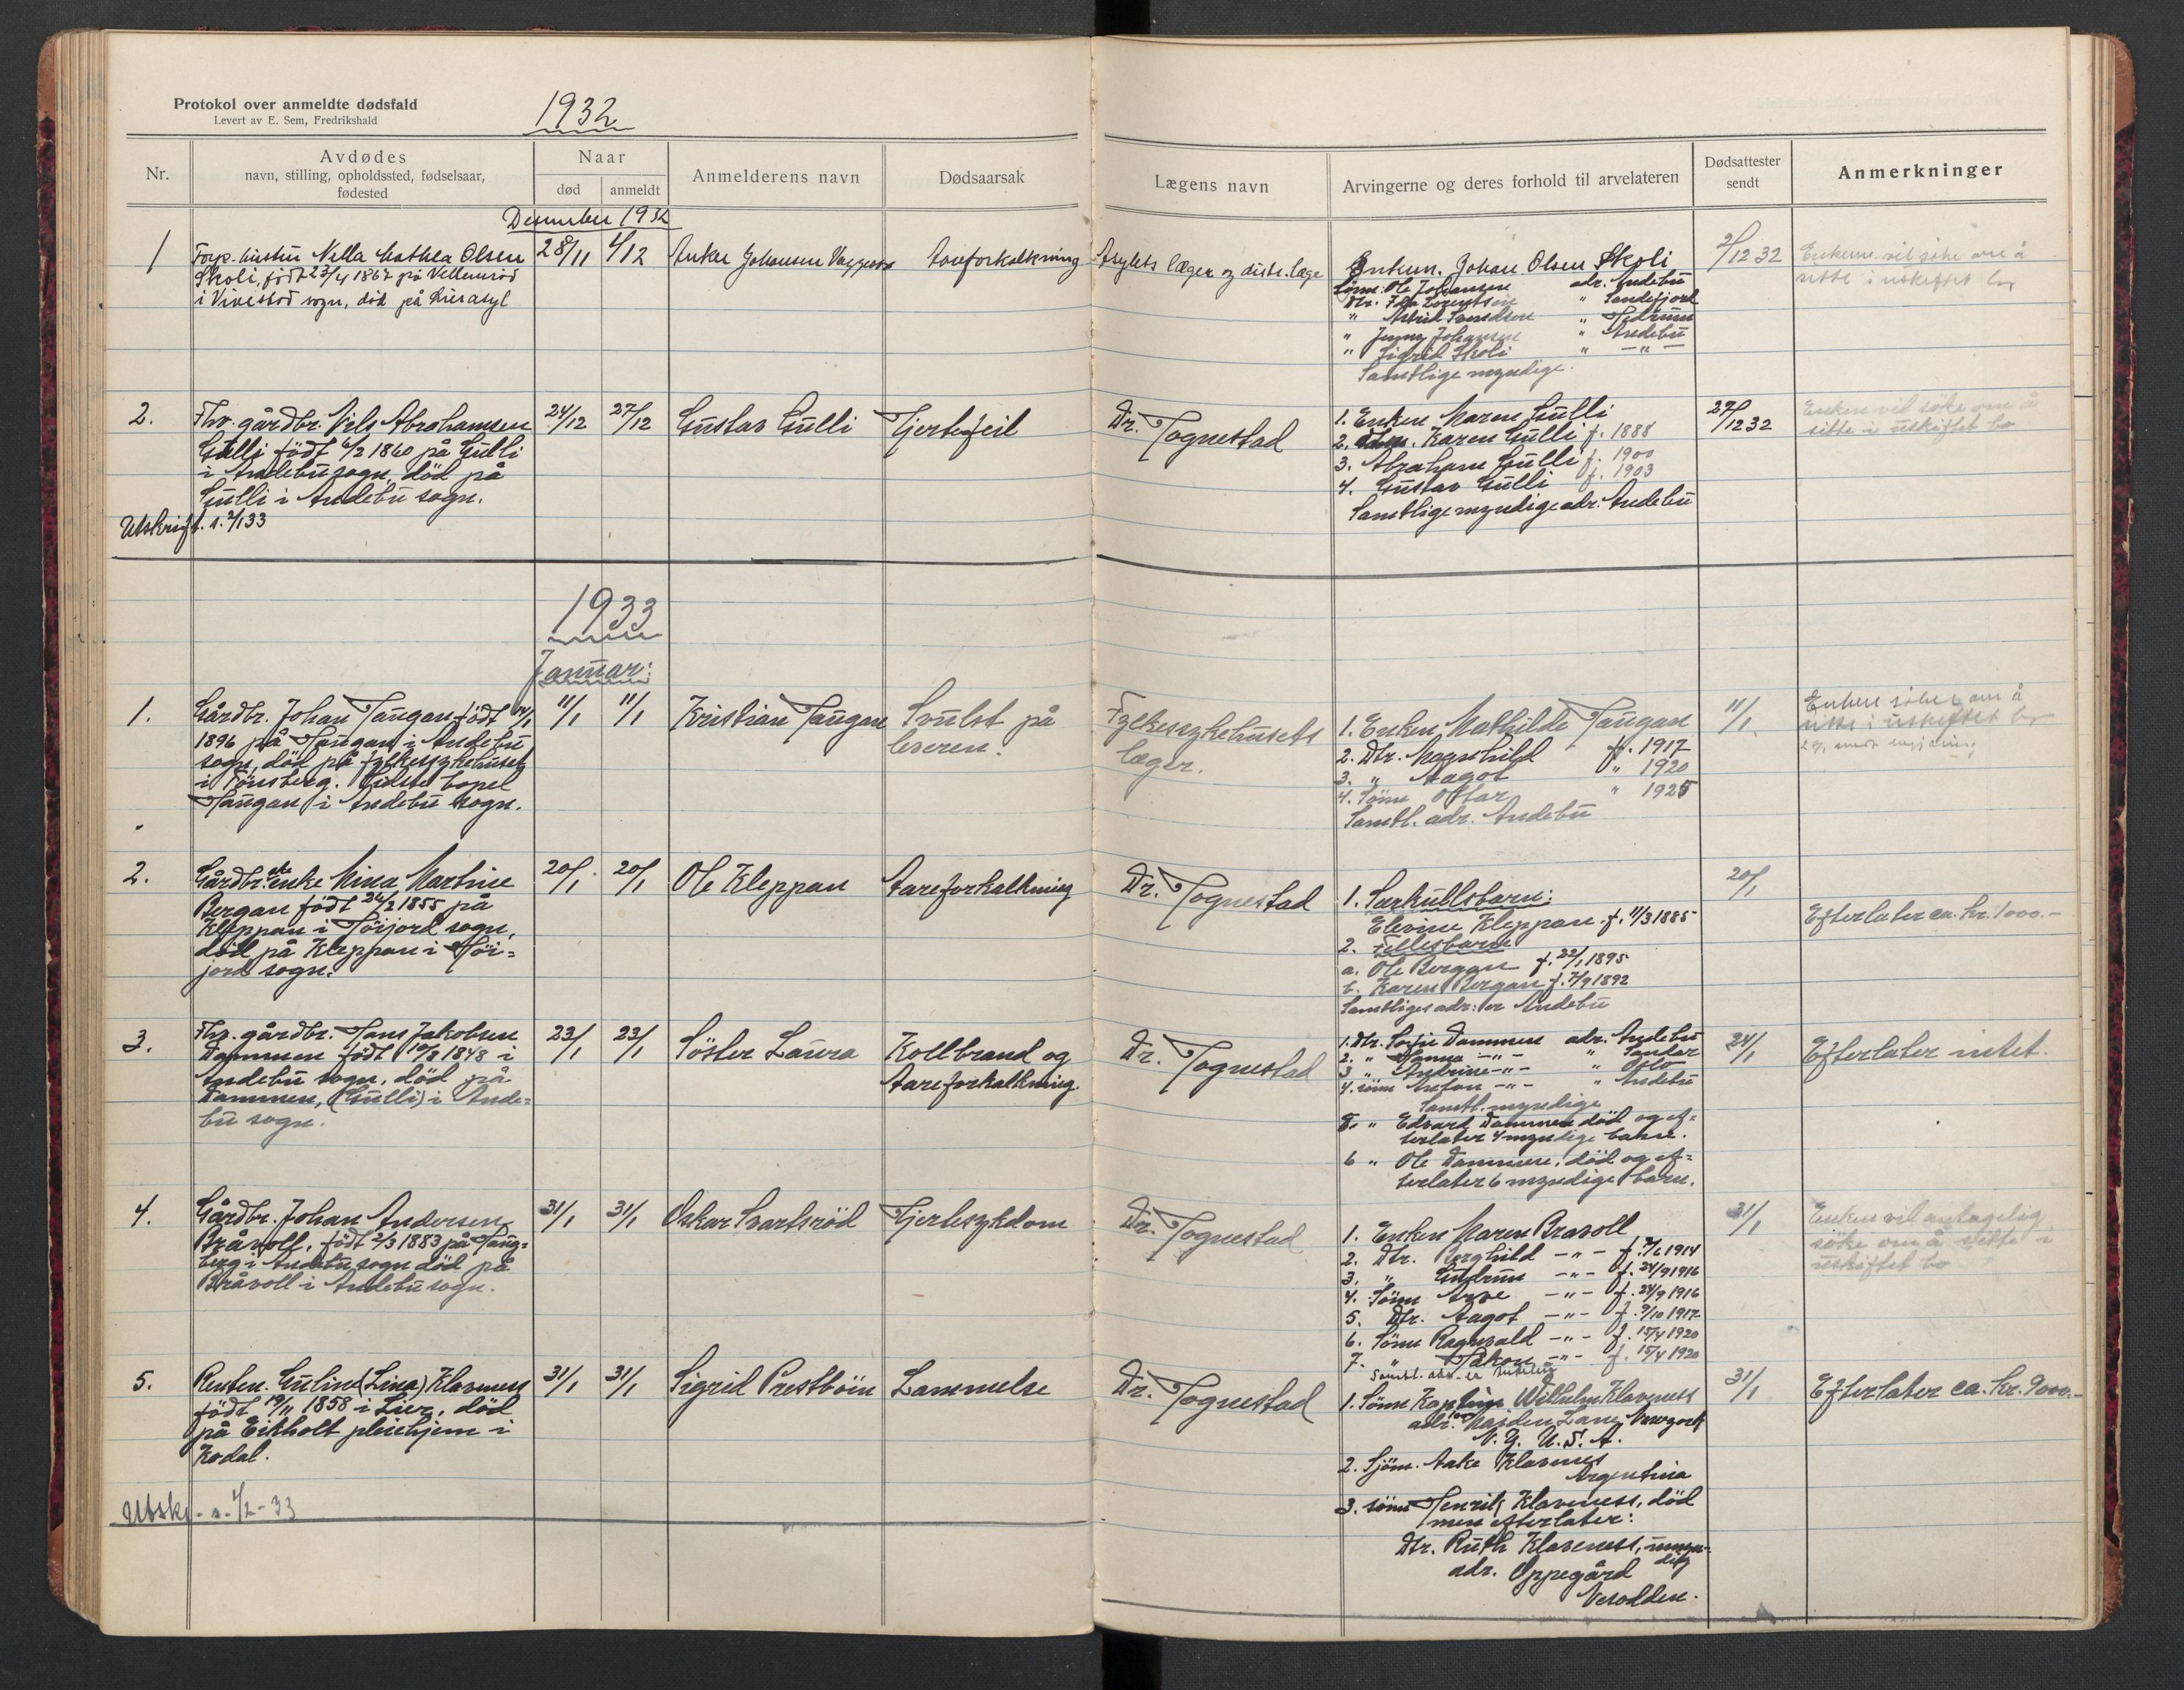 Protokol over anmeldte dødsfald
Levert av E. Sem, Fredrikshald
1932
Nr.
Avdødes
navn, stilling, opholdssted, fødselsaar,
fødested
Naar
død
anmeldt
Anmelderens navn
Dødsaarsak
Lægens navn
Arvingerne og deres forhold til arvelateren
Dødsattester
sendt
Anmerkninger
Desember 1932
1
Forp. hustru Nella Mathea Olsen
Skoli, født 23/4 1867 på Vellemrød
i Vivestad sogn, død på
28/11
1/12
Anker Johansen
Aareforkalkning
Asylets læger og distr. læge
Enkem. Johan Olsen Skoli
Sønn: Ole Johansen adr. Andebu
Dtr. Lorentsen " Sandefjord
" Astrid Svendsen " Hedrum
" Jenny Johansen " Andebu
" Sigrid Skoli " — " —
Samtlige myndige.
2/12 32
Enkem. vil søke om å
sitte i uskiftet bo
2.
Fhv. gårdbr. Nils Abrahamsen
Gulli født 6/2 1860 på Gulli
i Andebu sogn, død på
Gulli i Andebu sogn.
Utskrift. s. 2/1 33
24/12
27/12
Gustav Gulli
Hjertefeil
Dr. Tognestad
1. Enken Maren Gulli
2. Karen Gulli f. 1888
3. Abraham Gulli f. 1900
4. Gustav Gulli f. 1903
Samtlige myndige adr. Andebu
27/12 32
Enken vil søke om å
sitte i uskiftet bo
1933
Januar:
1.
Gårdbr. Johan Haugan født 14/1
1896 på Haugan i Andebu
sogn, død på fylkessykehuset
i Tønsberg. Sidste bopel
Haugan i Andebu sogn.
11/1
11/1
Kristian Haugan
Svulst på
leveren.
Fylkessykehusets
læger.
1. Enken Mathilde Haugan
2. Dtr. Magnhild f. 1917
3. " Aagot " 1920
4. Sønn Ottar " 1925
Samtl. adr. Andebu
11/1.
Enken søker om å
sitte i uskiftet bo
2.
Gårdbr. enke Mina Martine
Bergan født 24/2 1855 på
Kleppan i Høijord sogn,
død på Kleppan i Høi=
jord sogn.
20/1
20/1
Ole Kleppan
Aareforkalkning
Dr. Tognestad
1. Særkullsbarn:
Elevine Kleppan f. 11/3 1885
2. Fellesbarn
a. Ole Bergan f. 22/1 1895
b. Karen Bergan f. 7/9 1892
Samtliges adr: er Andebu
20/1
Efterlater ca. kr. 1000.-
3.
Fhv. gårdbr. Hans Jakobsen
Dammen født 10/8 1848 i
Andebu sogn, død på
Dammen, (Gulli) i Ande=
bu sogn.
23/1
23/1
Søster Laura
Kollbrand og
Aareforkalkning.
Dr. Tognestad
1. Dtr. Sofie Dammen adr. Andebu
2. " Hanna —"— " Sandar
3 " Andrine —"— " Oslo
4. sønn Anton —"— " Andebu
Samtl. myndige
5. " Edvard Dammen død og ef=
terlater 4 myndige barn.
6 " Ole Dammen, død og ef=
terlater 6 myndige barn.
24/1
Efterlater intet.
4.
Gårdbr. Johan Andersen
Bråvoll, født 2/3 1883 på Haug=
berg i Andebu sogn død på
Bråvoll i Andebu sogn.
31/1
31/1
Oskar Svartsrød
Hjertesykdom
Dr. Tognestad
1. Enken Maren Bravoll
2. Dtr. Borghild —"— f. 1914
3. " Gudrun —"— f. 24/9 1916
4. Sønn Arve —"— f. 24/9 1916
5. Dtr. Aagot —"— f. 9/10 1917
6. Sønn Ragnvald —"— f. 15/4 1920
7. " Håkon —"— f. 15/4 1920
Samtl. adr. er Andebu
31/1
Enken vil antagelig
søke om å sitte i
uskiftet bo
5.
Renten. Guline (Lina) Klavness
født 19/11 1858 i Lier, død
på Eikholt pleiehjem i
Kodal.
31/1
31/1
Sigrid Prestbøin
Lammelse
Dr. Tognestad
1. Sønn Kaptein Wilhelm Klavness
adr. 100 Maiden Lane Newyork
N.Y. U.S.A.
2. Sjøm. Aake Klavness
Argentina
3. sønn Henrik Klavness, død
men efterlater:
Dtr. Ruth Klavness, umyn-
dig
adr. Oppegård
Nesodden.
31/1
Efterlater ca. kr. 9000.-
Utskr. s. 1/2-33